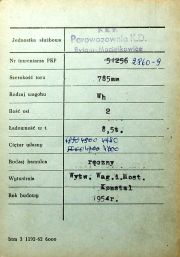 P.K.P.
Jednostka służbowa Parowozownia K.D.
Bytom Maciejkowice
Nr inwentarza PKP 51256 2860-9
Szerokość toru 785mm
Rodzaj wagonu Wh
Ilość osi 2
Ładowność w t 8,5t.
Ciężar własny 4800
Rodzaj hamulca ręczny
Wytwórnia Wytw. Wag.i.Most.
Konstal
Rok budowy 1954r.